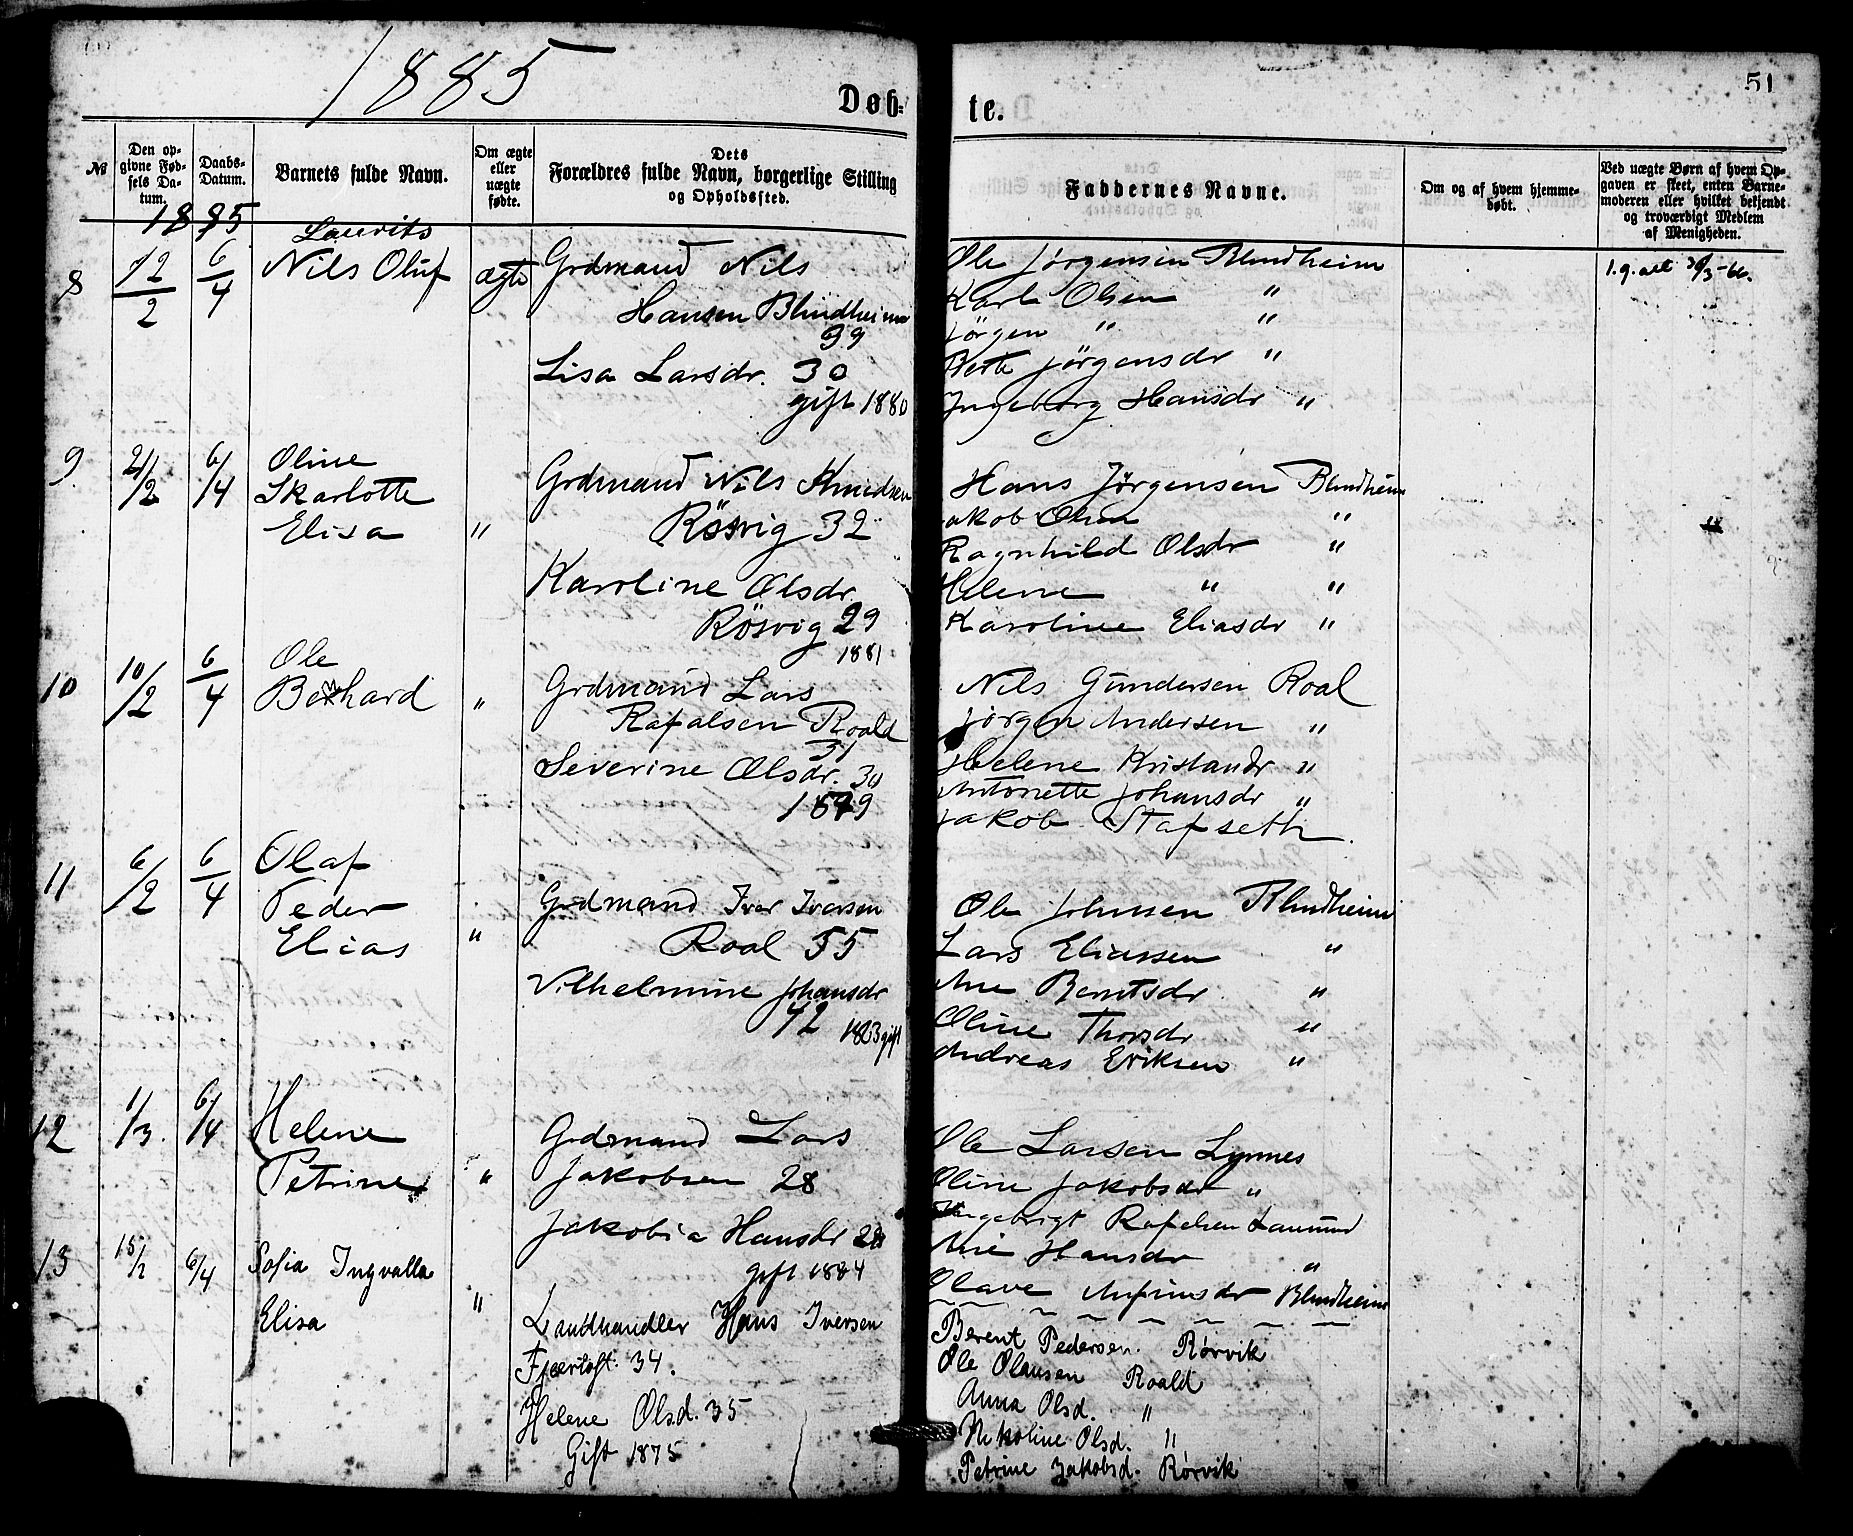 1885
51
Døb-
te.
№
Den op-
givne Fød-
sels Da-
tum.
Daabs-
Datum.
Barnets fulde Navn.
Om ægte
eller
uægte
fødte.
Dets
Forældres fulde Navn, borgerlige Stilling
og Opholdssted.
Faddernes Navne.
Om og af hvem hjemme-
døbt.
Ved uægte Børn af hvem Op-
gaven er skeet, enten Barne-
moderen eller hvilket bekjendt
og troværdigt Medlem
af Menigheden.
1885
8
12/2
6/4
Lauvits
Nils Oluf
ægte
Grdmand Nils
Hansen Blindheim
39
Lisa Larsdr. 30
gift 1880
Ole Jørgensen Blindheim
Karl Olsen "
Jørgen " "
Berte Jørgensdr "
Ingeborg Hansdr "
9
21/2
6/4
Oline
Skarlotte
Elisa
"
Grdmand Nils Knudsen
Rösvig 32
Karoline Olsdr.
Rösvig 29
1881
Hans Jørgensen Blindheim
Jakob Olsen "
Ragnhild Olsdr "
Helene " "
Karoline Eliasdr "
10
10/2
6/4
Ole
Bernhard
"
Grdmand Lars
Rafalsen Roald
31
Severine Olsdr. 30
1879
Nils Gundersen Roal
Jörgen Andersen "
Helene Kristiandr "
Antonette Johansdr "
Jakob Stafseth
11
6/2
6/4
Olaf
Peder
Elias
"
Grdmand Iver Iversen
Roal 55
Vilhelmine Johansdr
42
1883 gift
Ole Johnsen Blindheim
Lars Eliassen "
Ane Berntsdr "
Oline Thorsdr "
Andreas Eriksen "
12
1/3
6/4
Helene
Petrine
"
Grdmand Lars
Jakobsen 28
Jakobia Hansdr
gift 1884
Ole Larsen Synnes
Oline Jakobsdr "
Ingebrigt Rafelsen
Ane Hansdr "
Olave Anfinnsdr Blindheim
13
6/4
Sofia Ingvalla
Elisa
"
Landhandler Hans Iversen
Fjærtoft 34.
Helene Olsd. 35
Gift 1875
Berent Pedersen. Rørvik
Ole Olausen Roald
Anna Olsd. "
Nikoline Olsd. "
Petrine Jakobsd. Rørvik